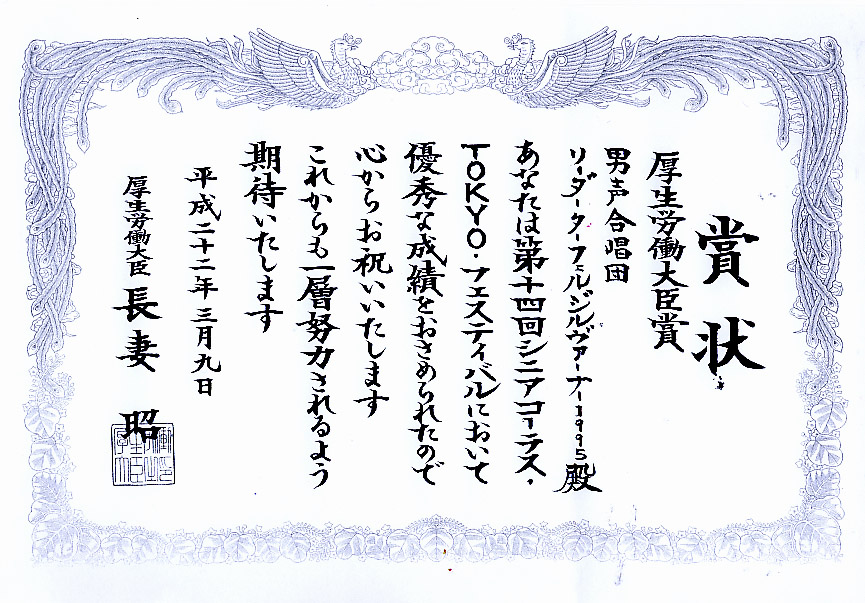 賞状
厚生労働大臣賞
男声合唱団
リーダーターフェルジルヴァーナー1995殿
あなたは第十四回シニアコーラス・
TOKYO・フェスティバルにおいて
優秀な成績をおさめられたので
心からお祝いいたします
これからも一層努力されるよう
期待いたします
平成二十二年三月九日
厚生労働大臣 長妻昭